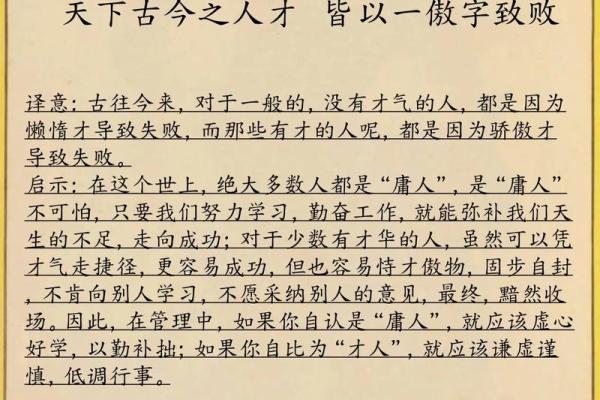 天下古今之人才 皆以一傲字致败
译意：古往今来，对于一般的，没有才气的人，都是因为
懒惰才导致失败，而那些有才的人呢，都是因为骄傲才
导致失败。
启示：在这个世上，绝大多数人都是“庸人”，是“庸人”
不可怕，只要我们努力学习，勤奋工作，就能弥补我们天
生的不足，走向成功；对于少数有才华的人，虽然可以凭
才气走捷径，更容易成功，但也容易恃才傲物，固步自封
，不肯向别人学习，不愿采纳别人的意见，最终，黯然收
场。因此，在管理中，如果你自认是“庸人”，就应该虚心
好学，以勤补拙；如果你自比为“才人”，就应该谦虚谨
慎，低调行事。